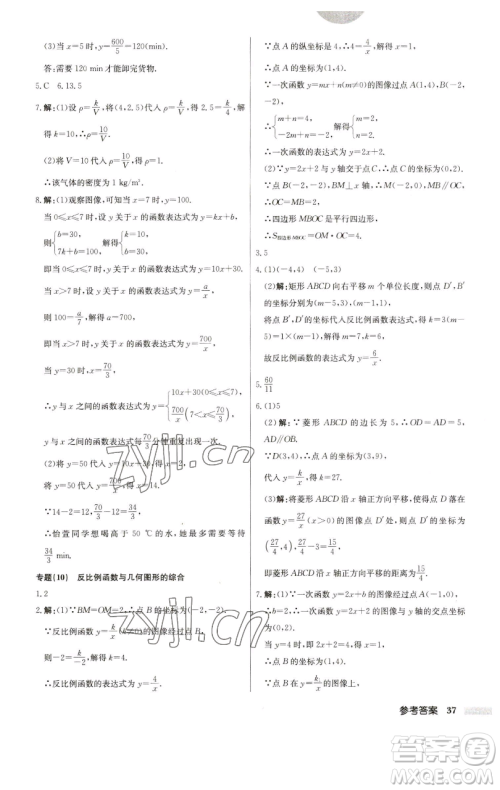 (3)当x=5时,y=600/5=120(min).
答:需要120 min才能卸完货物.
5.C 6.13.5
7.解:(1)设ρ=k/V,将(4,2.5)代入ρ=k/V,得2.5=k/4,解
得k=10,∴ρ=10/V.
(2)将V=10代入ρ=10/V,得ρ=1.
∴该气体的密度为1 kg/m³.
8.解:(1)观察图像,可知:当
0≤x≤7时,设y关于x的函数表达式为y=kx+b,
则{b=30, 7k+b=100,解得{k=10, b=30.
当0≤x≤7时,y关于x的函数表达式为y=10x+30.
当x>7时,设y关于x的函数表达式为y=a/x,
则100=a/7,解得a=700,
当x>7时,y关于x的函数表达式为y=700/x.
当y=30时,x=70/3.
∴y与x之间的函数表达式为y={10x+30(0≤x≤7), 700/x(7<x≤70/3),
y与x之间的函数表达式每70/3分钟重复出现一次.
(2)将y=50代入y=10x+30,得x=2.
将y=50代入y=700/x,得x=14.
∵14-2=12,34/3<12,
∴怡萱同学想喝高于50 ℃的水,她最多需要等待
34/3 min.
专题(10) 反比例函数与几何图形的综合
1.2
2.解:(1)∵BM=OM=2,∴点B的坐标为(-2,-2).
∵反比例函数y=k/x(k≠0)的图像经过点B,
则-2=k/-2,解得k=4.
∴反比例函数的表达式为y=4/x.
∵点A的纵坐标是4,∴4=4/x,解得x=1.
∴点A的坐标为(1,4).
∵一次函数y=mx+n(m≠0)的图像过点A(1,4),B(-2,
-2),
∴{m+n=4, -2m+n=-2,解得{m=2, n=2.
∴一次函数的表达式为y=2x+2.
(2)∵y=2x+2与y轴交于点C,∴点C的坐标为(0,2).
∵点B(-2,-2),BM⊥x轴,∴点M(-2,0).
∴OC=MB=2.
∵BM⊥x轴,∴MB∥OC.
∴四边形MBOC是平行四边形.
∴S四边形MBOC=OM·OC=4.
3.5
4.(1)(-4,4) (-5,3)
(2)解:∵矩形ABCD向右平移m个单位长度,则D′,B′
的坐标分别为(m-5,3),(m-4,1).
将点B′,D′的坐标代入反比例函数表达式,得k=3(m-
5)=1×(m-4),解得
k=6.
故反比例函数的表达式为y=6/x.
5.60/11
6.(1)5
(2)解:∵菱形ABCD的边长为5,∴OD=AD=5,
AD∥OB.
∵D(3,4),∴点A的坐标为(3,9).
代入y=k/x,得k=27.
(3)解:将菱形ABCD沿x轴正方向平移,使得点D落在
函数y=27/x(x>0)的图像上点D′处,此时点D′的坐标为
(27/4,4),而27/4-3=15/4.
∴菱形ABCD沿x轴正方向平移的距离为15/4.
7.解:(1)∵一次函数y=2x+b的图像过点B(0,2),
∴b=2.
∴一次函数的表达式为y=2x+2.
当y=4时,4=2x+2,解得x=1.
∴点E的坐标为(1,4).
∵点E在y=k/x的图像上,
参考答案 37
zyjl.cn
zyjl.cn